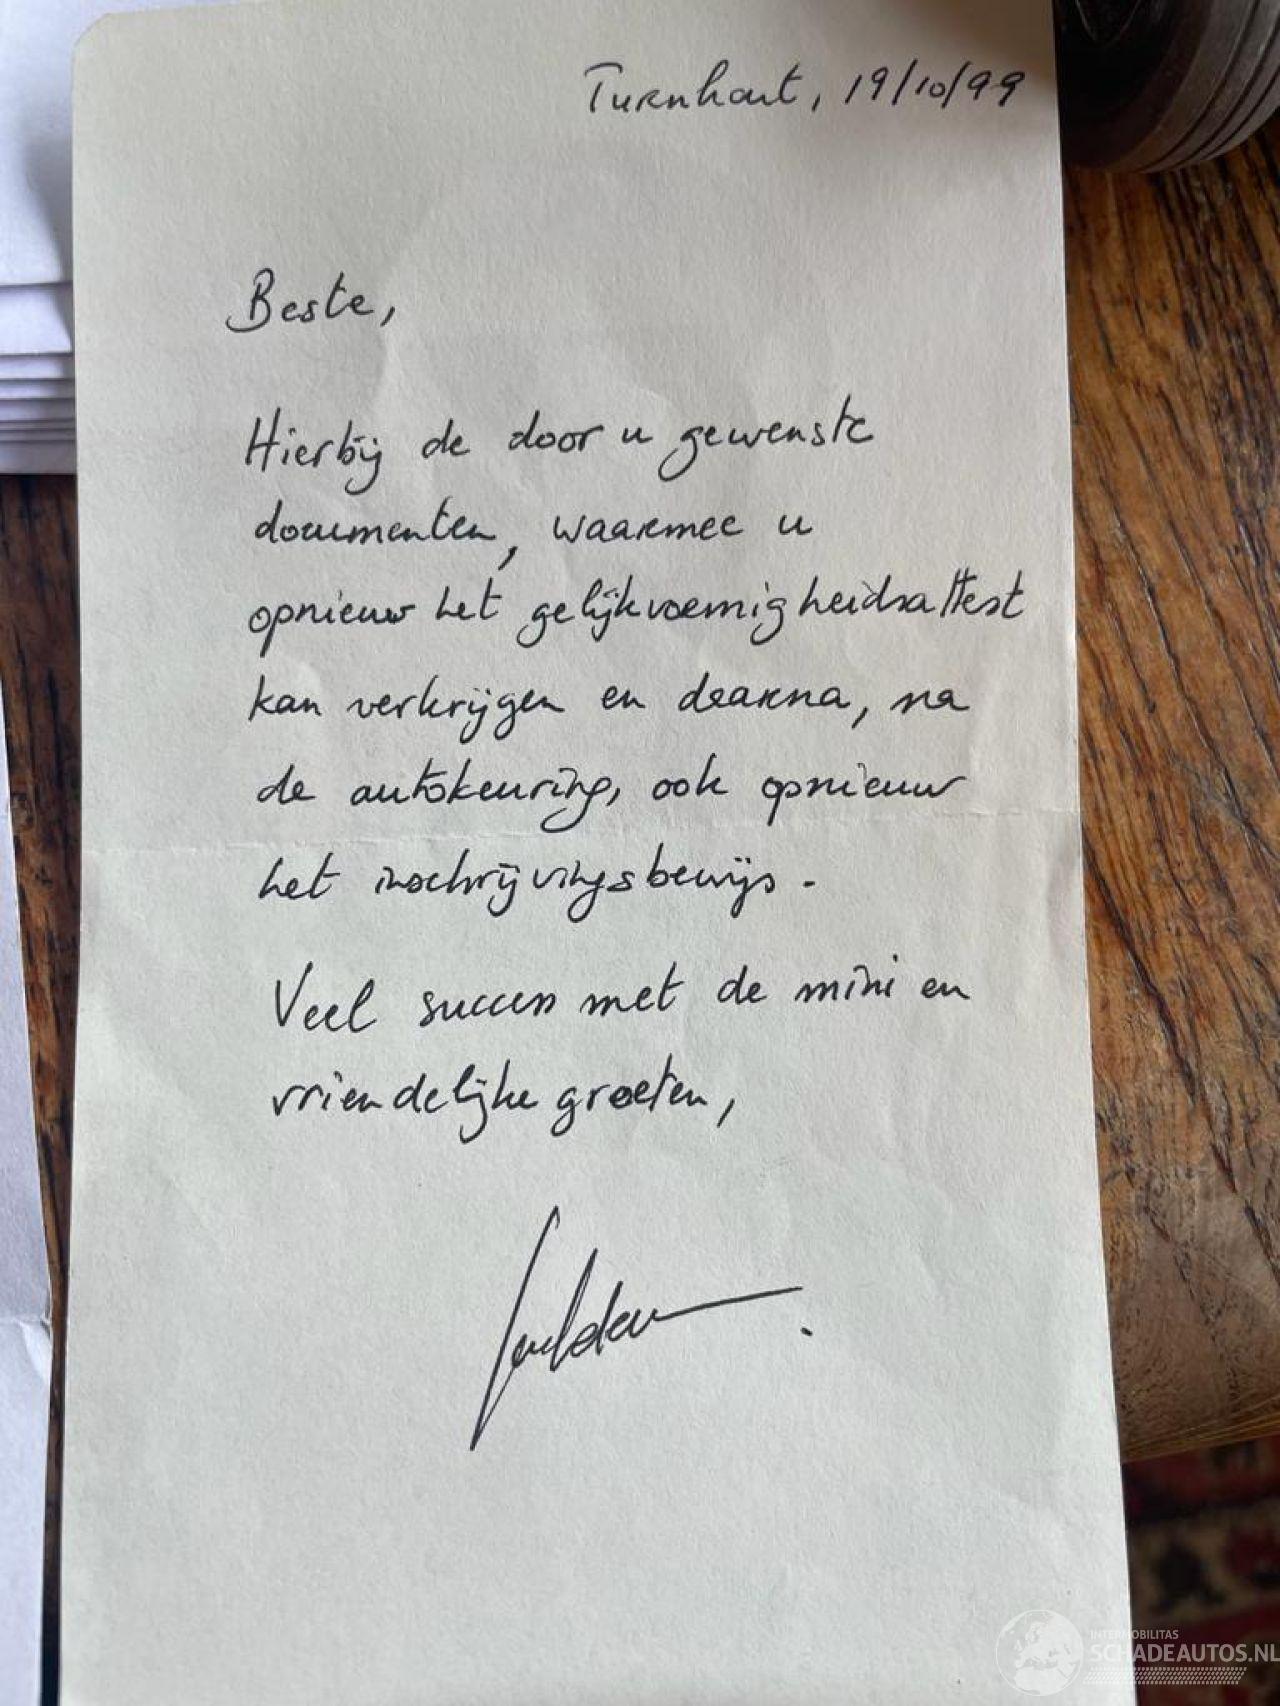 Turnhout, 19/10/99
Beste,
Hierbij de door u gewenste
documenten, waarmee u
opnieuw het gelijkvormigheidsattest
kan verkrijgen en daarna, na
de autokeuring, ook opnieuw
het inschrijvingsbewijs.
Veel succes met de mini en
vriendelijke groeten,
INTERMOBILITAS
SCHADEAUTOS.NL